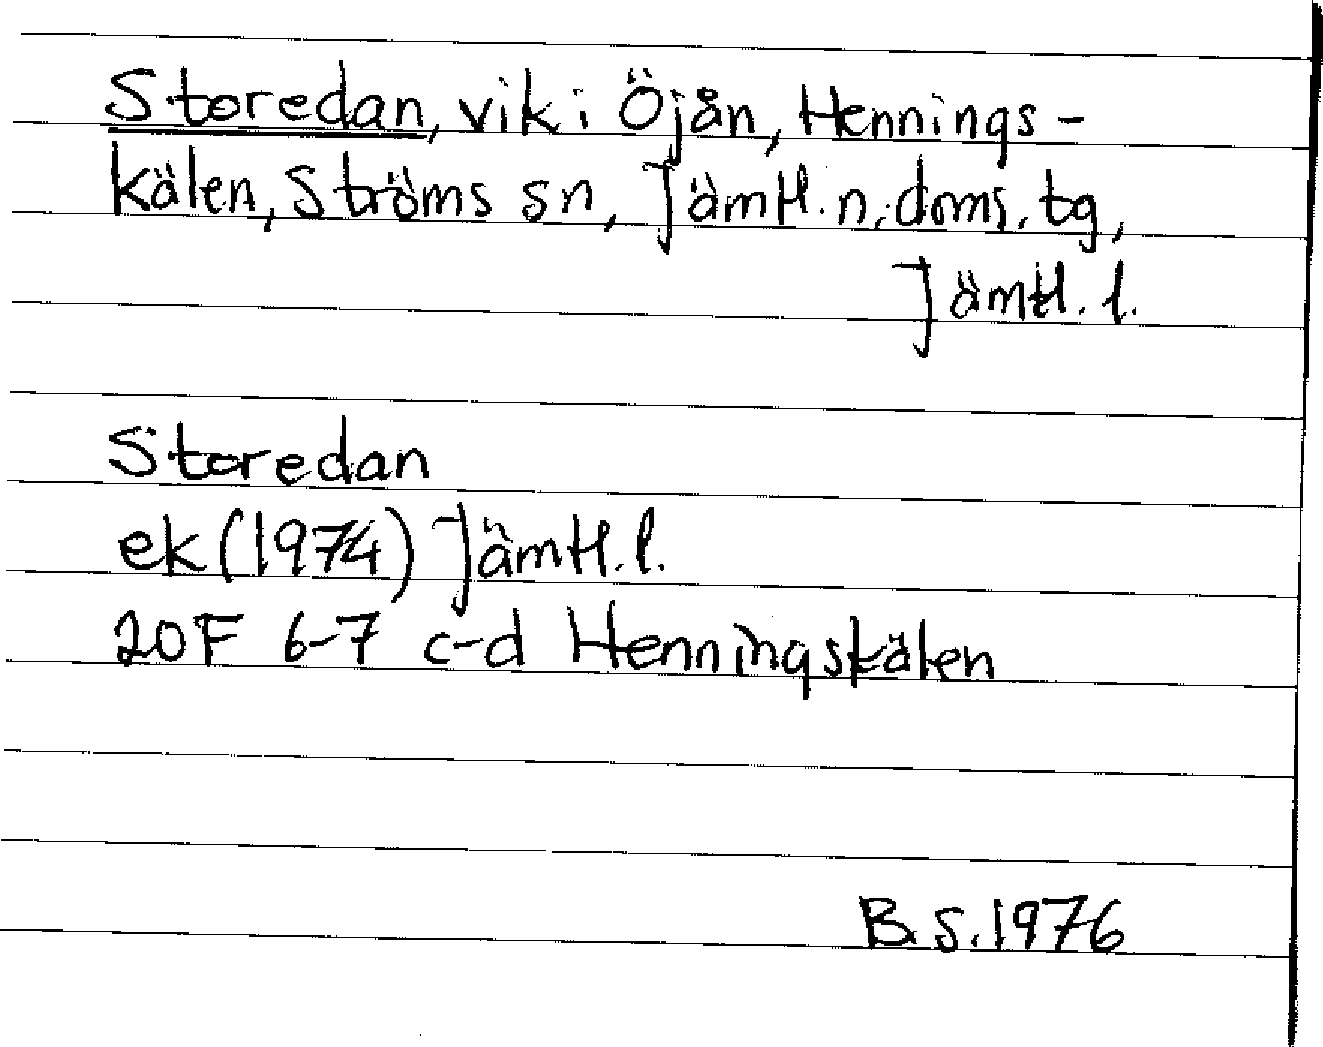 Storedan, vik i Öjån, Hennings-
kälen, Ströms sn, Jämtl. n. doms. tg,
Jämtl. l.
Storedan
ek (1974) Jämtl. l.
20F 6-7 c-d Henningskälen
B.S. 1976